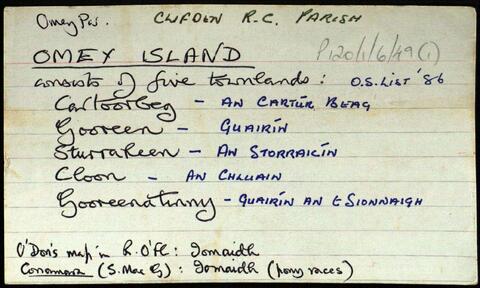 Omey Par. CLIFDEN R.C. PARISH
P120/1/6/49(1)
OMEY ISLAND
consists of five townlands: O.S. LIST '86
Cartoorbeg - AN CARTÚR BEAG
Gooreen - GUAIRÍN
Sturrakeen - AN STORRAICÍN
Cloon - AN CHLUAIN
Gooreenatinny - GUAIRÍN AN tSIONNAIGH
O'Don's map in R. O'Fl: Iomaidh
Conamara (S. Mac G): Iomaidh (pony races)